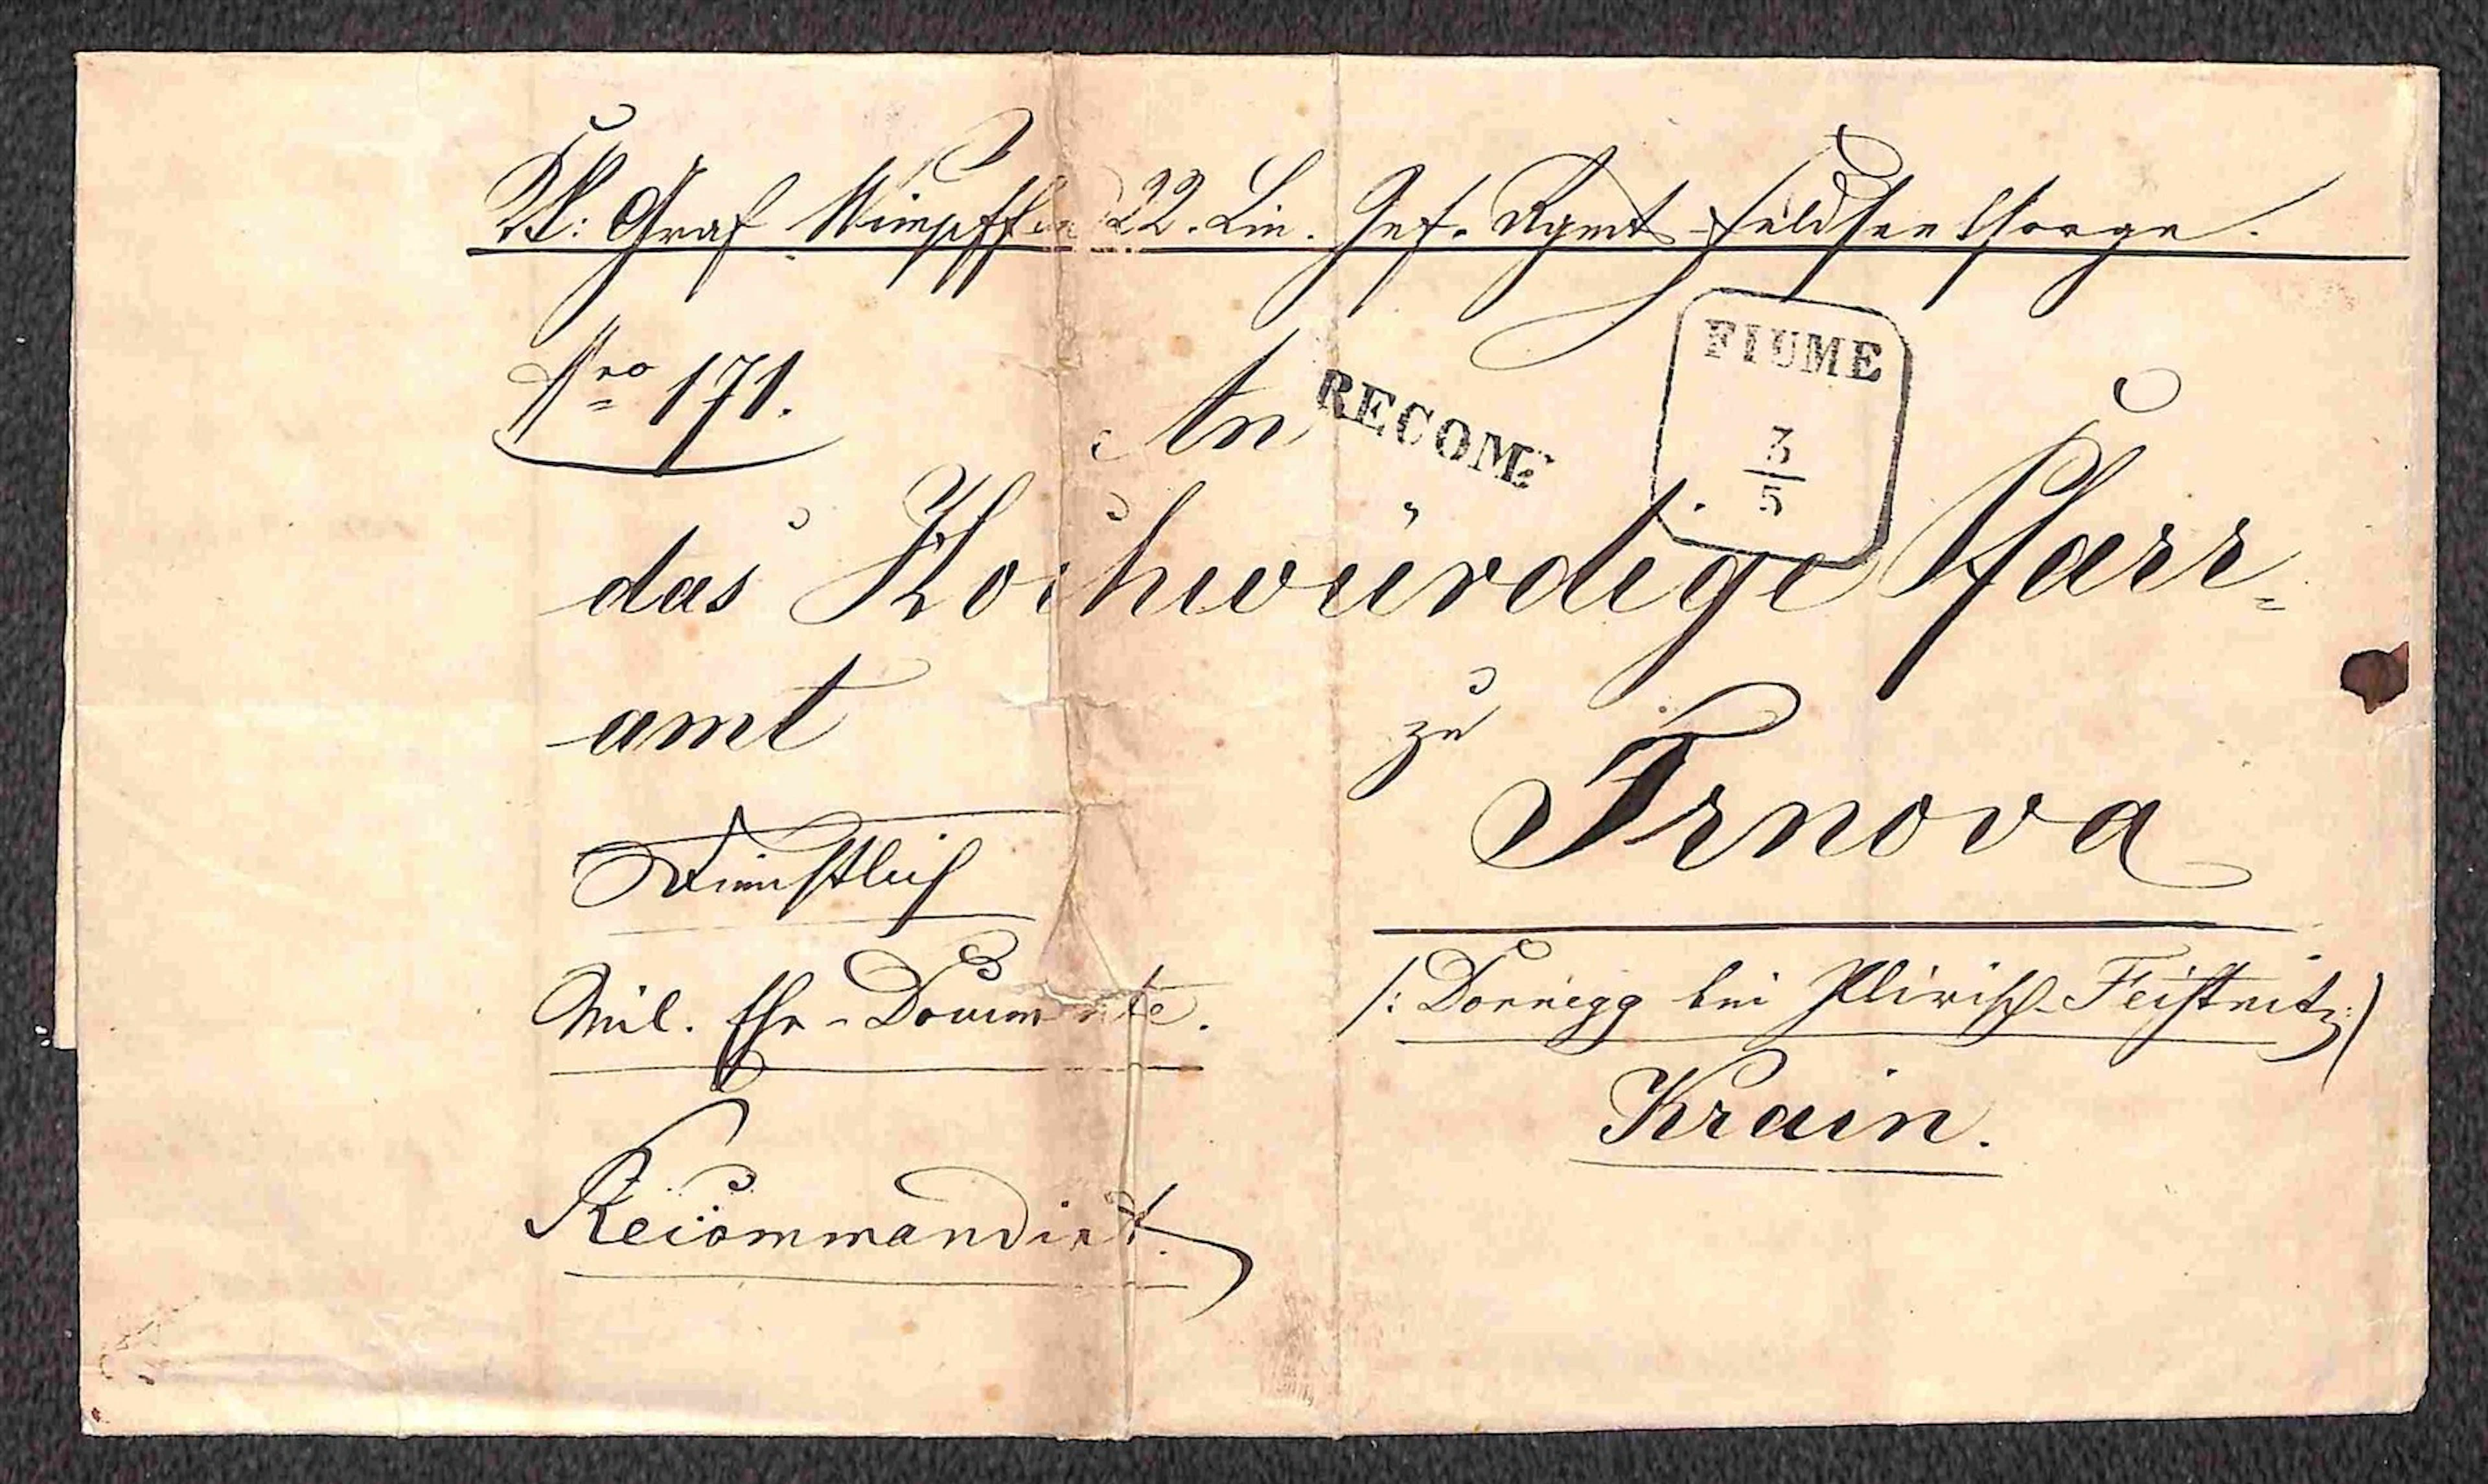 KK: Graf Wimpffen 22. Lin. Inf. Rgmts Feldseelsorge.
Nro 171.
An
RECOM:
FIUME
3
5
das Hochwürdige Pfarr=
amt
zu
Trnova
Dienstlich
/: Dornegg bei Illirisch-Feistritz :/
Mil. Ehe-Documente.
Krain.
Recommandirt.